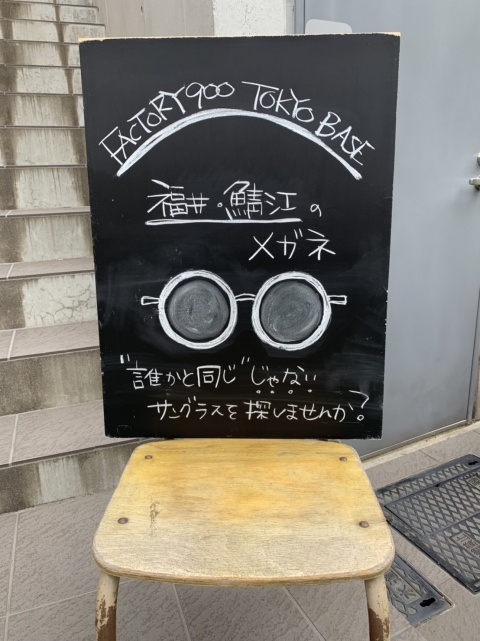 FACTORY900 TOKYO BASE
福井・鯖江の
メガネ
"誰かと同じ"じゃない
サングラスを探しませんか?